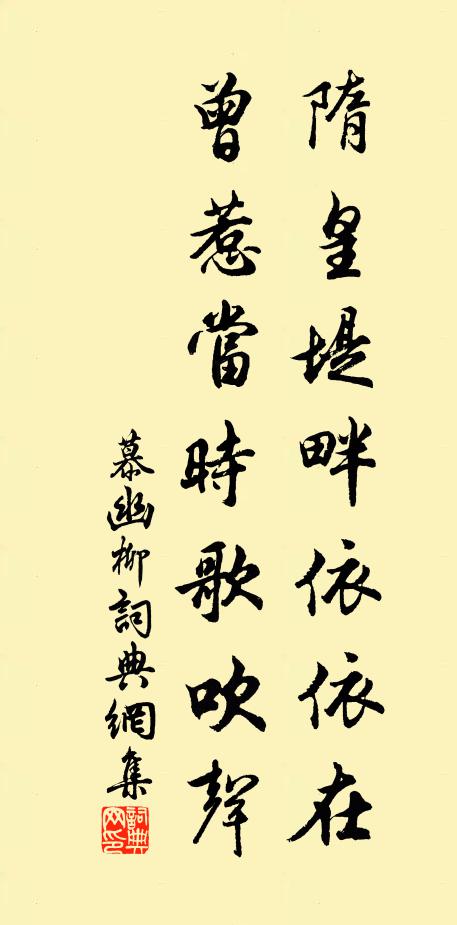 隋皇堤畔依依在
曾惹當時歌吹聲
慕幽柳詞典網集
詞典網印